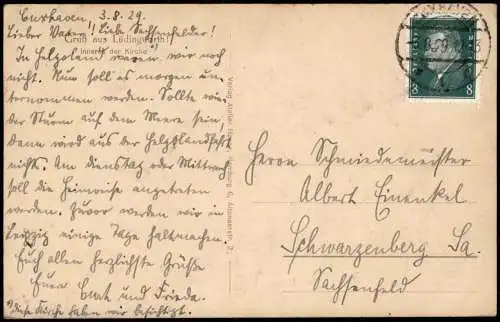 Cuxhaven, 3.8.29.
Lieber Vater! Liebe Sachsenfelder!
Gruß aus Lüdingworth!
Inneres der Kirche
In Helgoland waren wir noch
nicht. Nun soll es morgen un-
ternommen werden. Sollte wie-
der Sturm auf dem Meere sein,
dann wird aus der Helgolandfahrt
nichts. Am Dienstag oder Mittwoch
soll die Heimreise angetreten
werden. Zuvor werden wir in
Leipzig einige Tage haltmachen.
Euch allen herzlichste Grüße
Eure und Frieda.
*) diese Kirche haben wir besichtigt.
Verlag Atelier Hamburg 6,
Herrn Schmiedemeister
Albert Einenkel
Schwarzenberg Sa.
Sachsenfeld
8 8